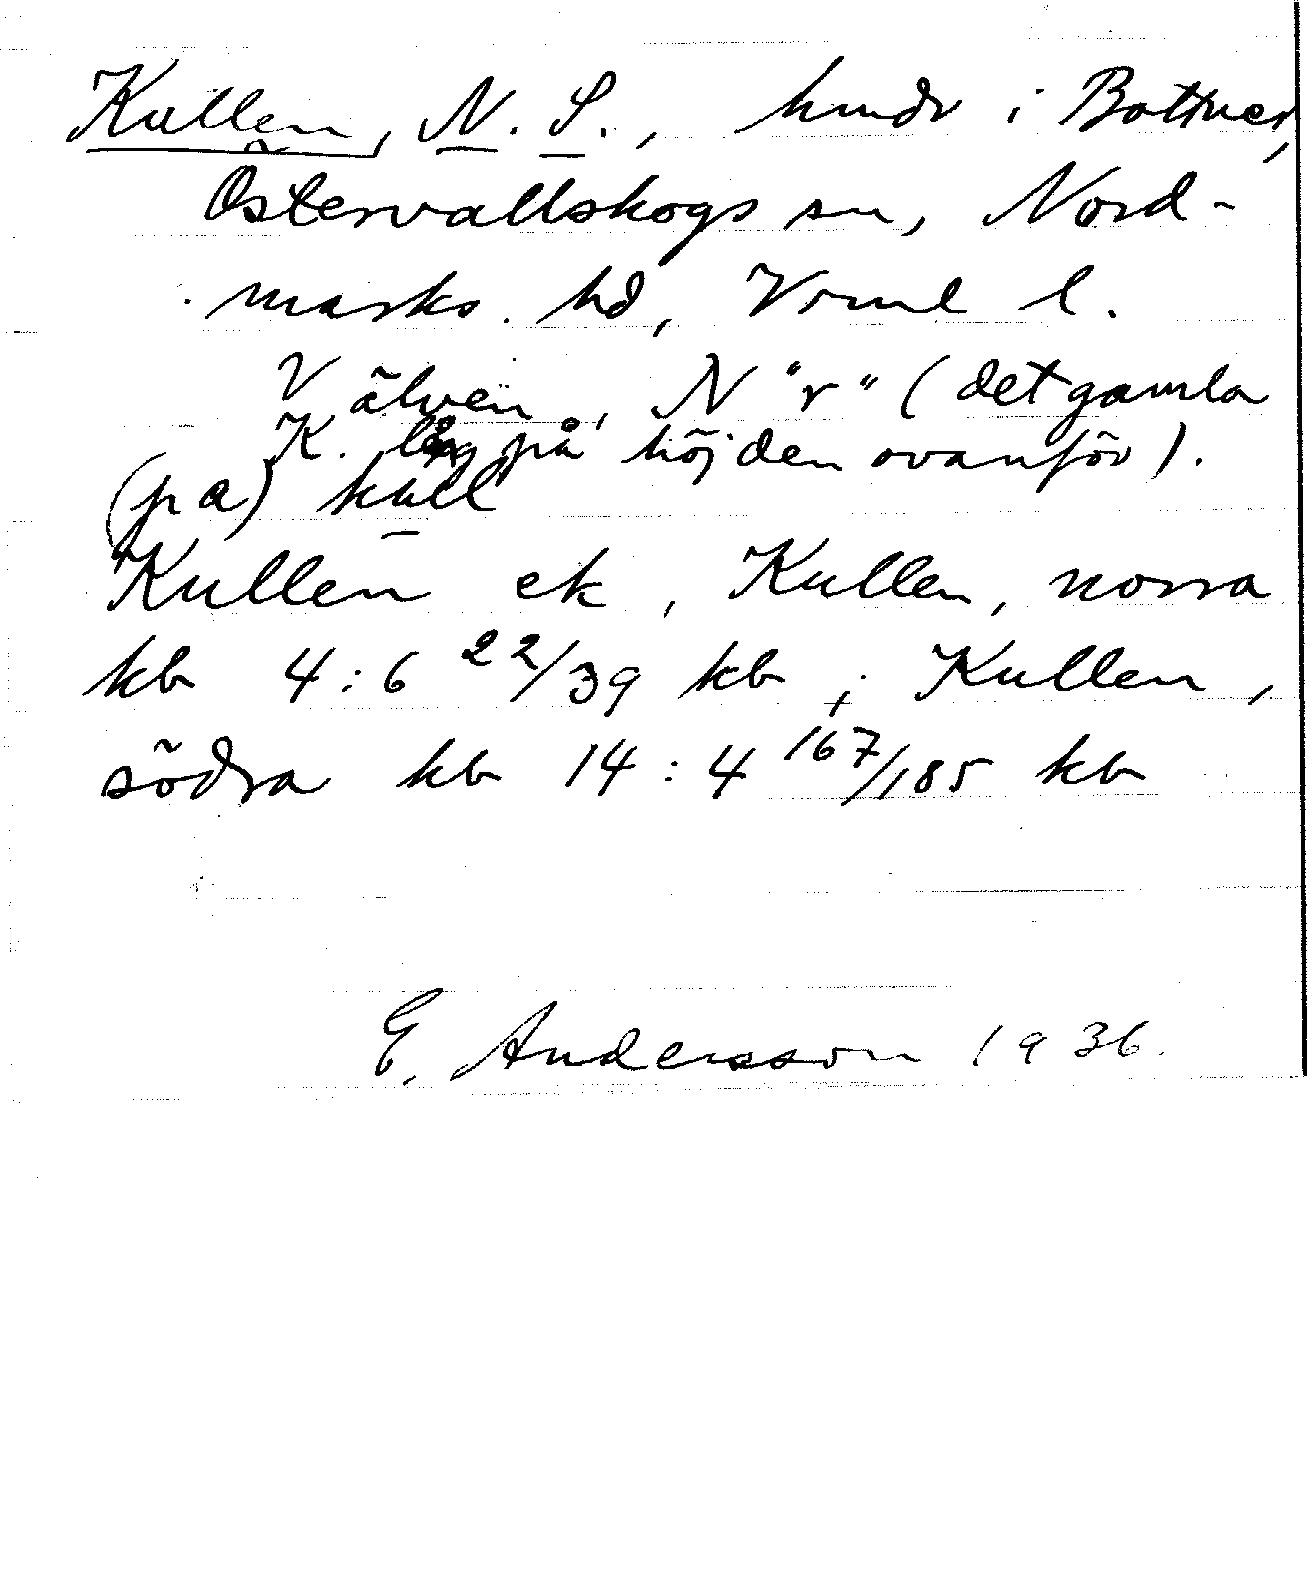 Kullen, N. S., hmdr i Bottnen,
Östervallskogs sn, Nord-
marks hd, Vrml l.
V älven, N "r" (det gamla
K. låg på höjden ovanför).
(pa) kull
Kullen ek, Kullen, norra
kb 4:6 22/39 kb; Kullen,
södra kb 14:4 167/185 kb
E. Andersson 1936.